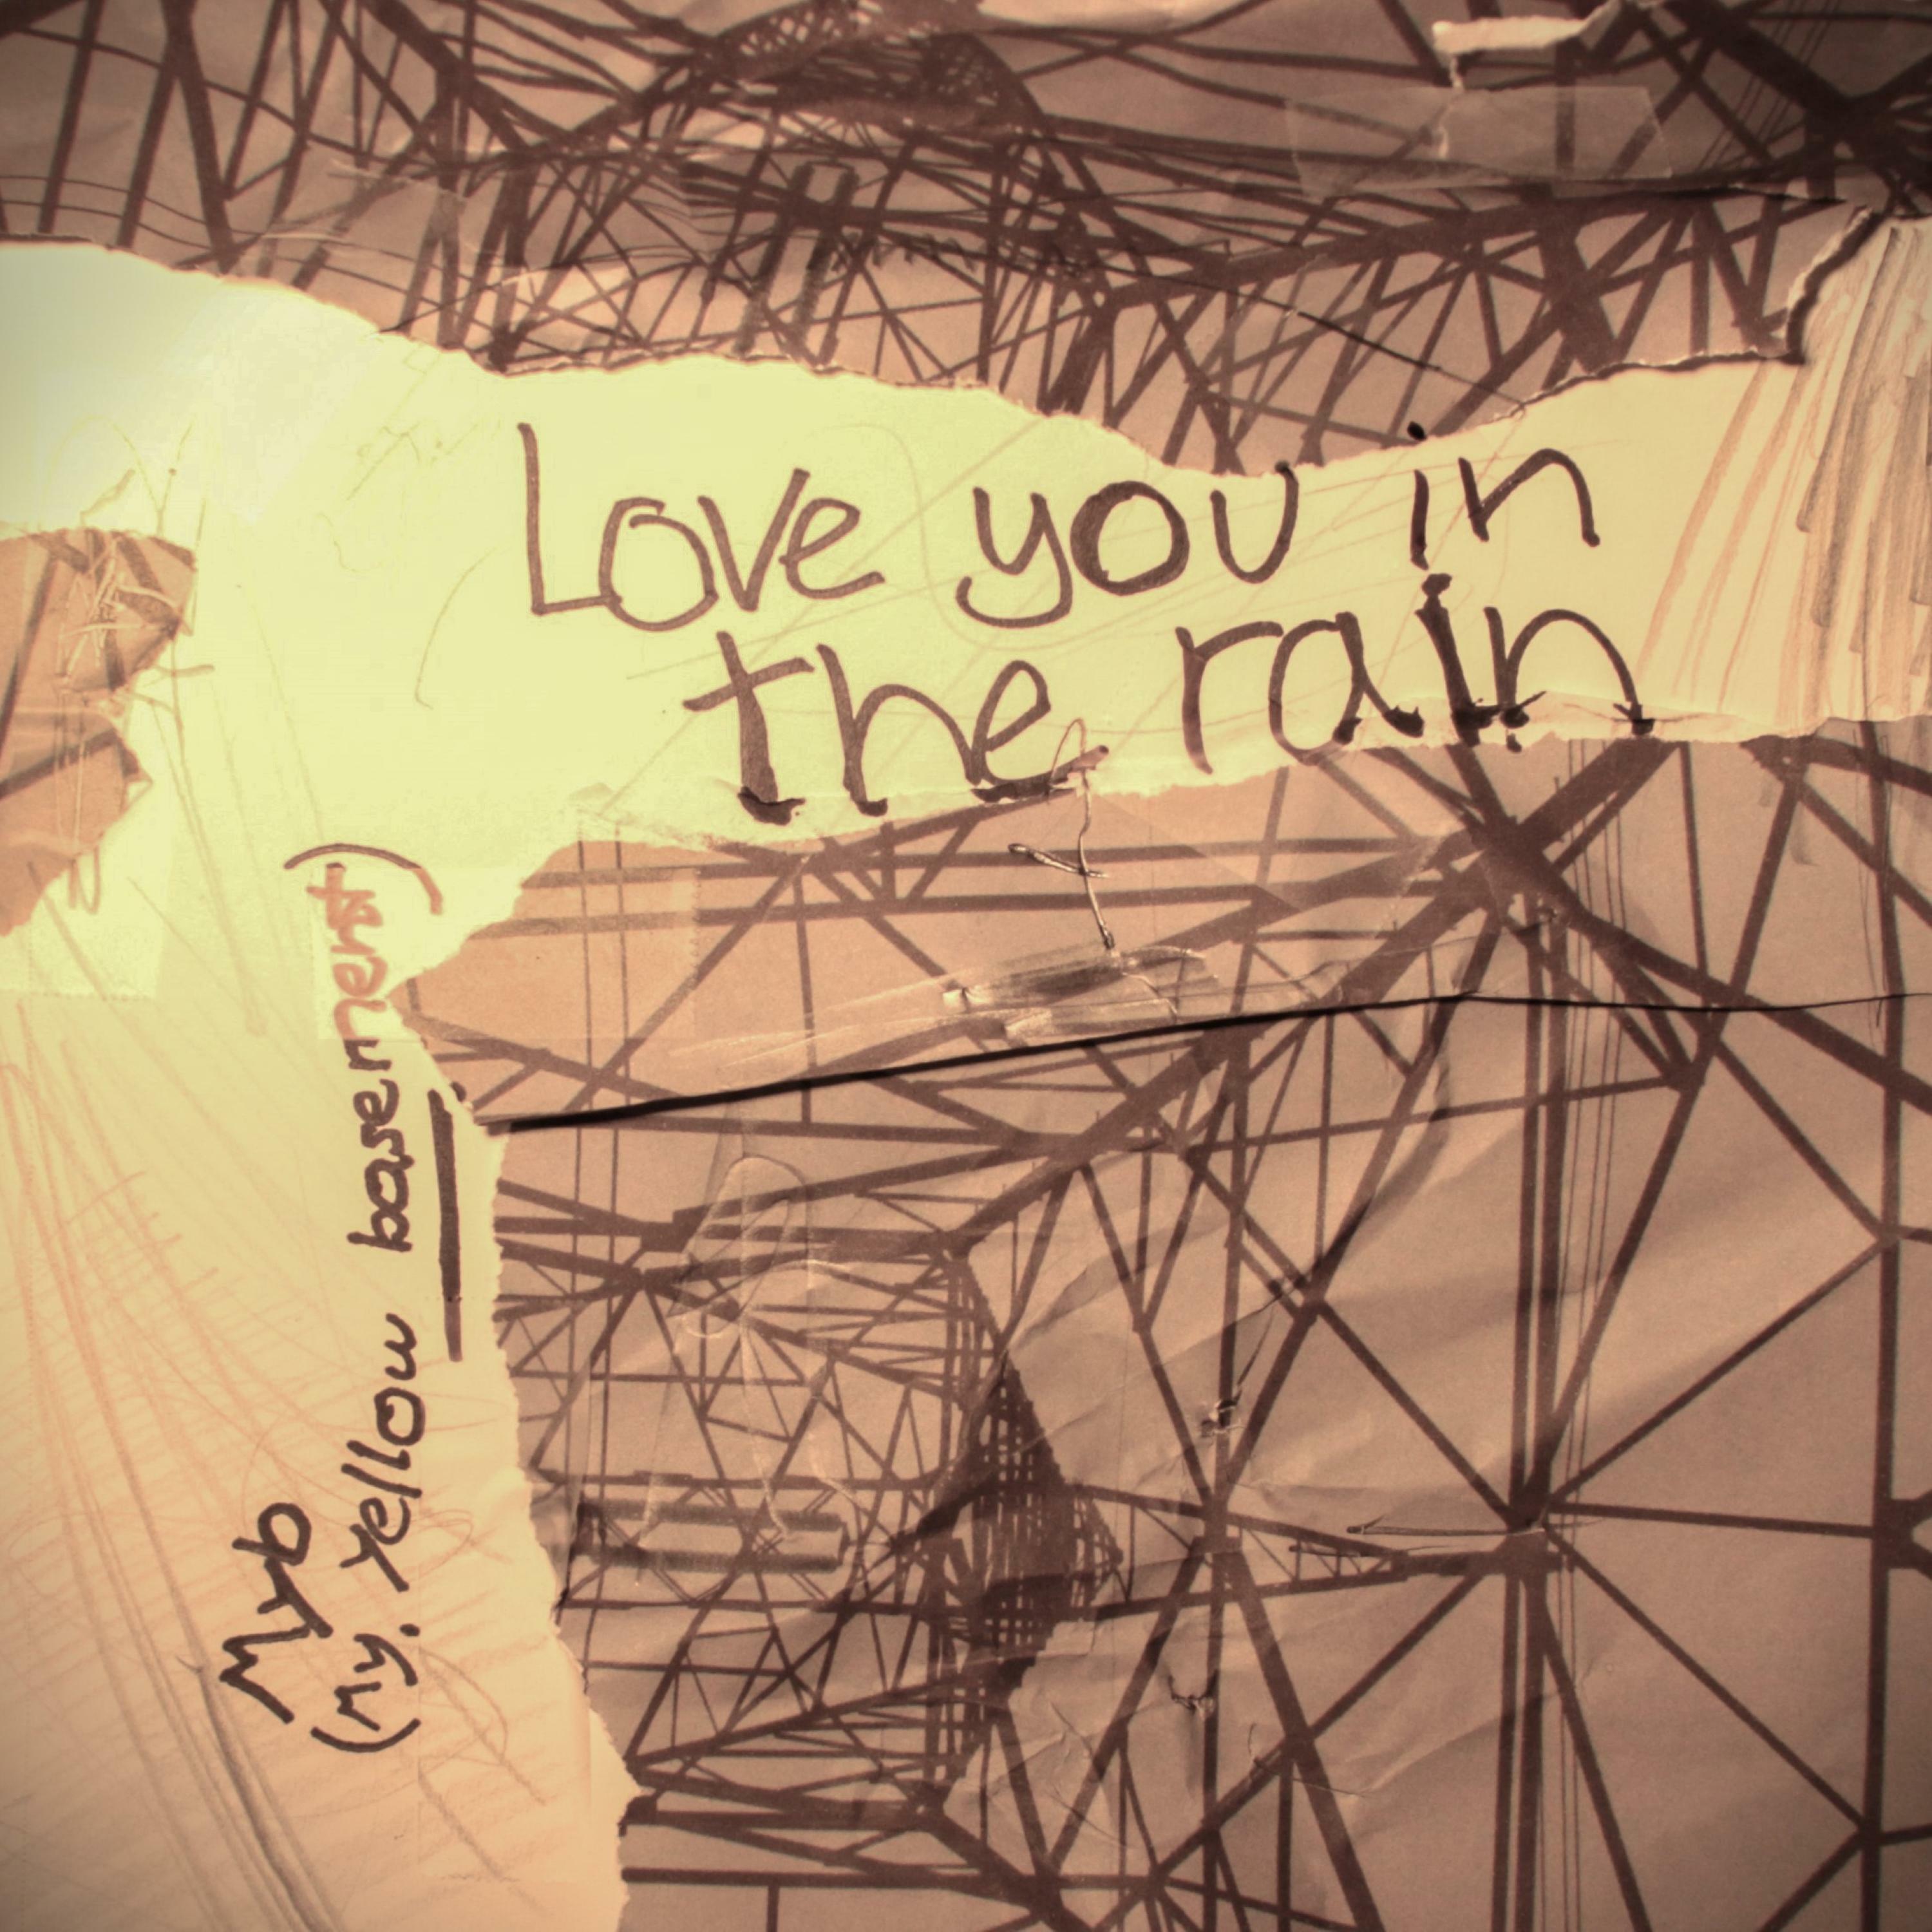 Love you in
the rain
Myb
(My. Yellow basement)